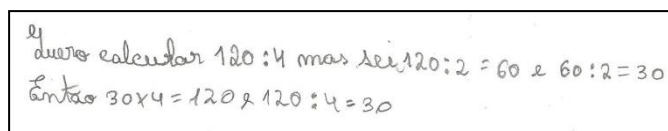 Quero calcular 120:4 mas sei 120:2 = 60 e 60:2 = 30
Então 30x4 = 120 e 120:4 = 30